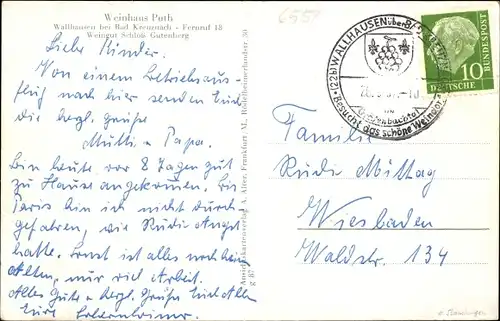 Weinhaus Puth
Wallhausen bei Bad Kreuznach - Fernruf 18
Weingut Schloß Gutenberg
Liebe Kinder.
Von einem Betriebsaus-
flug nach hier senden Euch
die herzl. Grüße
Mutti + Papa.
Bin heute vor 8 Tagen gut
zu Hause angekommen. Bis
Paris bin ich nicht durch-
gefahren, wie Rudi Angst
hatte. Sonst ist alles noch beim
Alten, nur viel Arbeit.
Alles Gute + herzl. Grüße Euch Allen
Eure
Ansichtskartenverlag A. Alter, Frankfurt M., Rödelheimerlandstr. 30
(22b) WALLHAUSEN über BAD KREUZNACH
Besucht das schöne Weindorf
im Gräfenbachtal
10
DEUTSCHE
BUNDESPOST
Familie
Rudi Mittag
Wiesbaden
Waldstr. 134